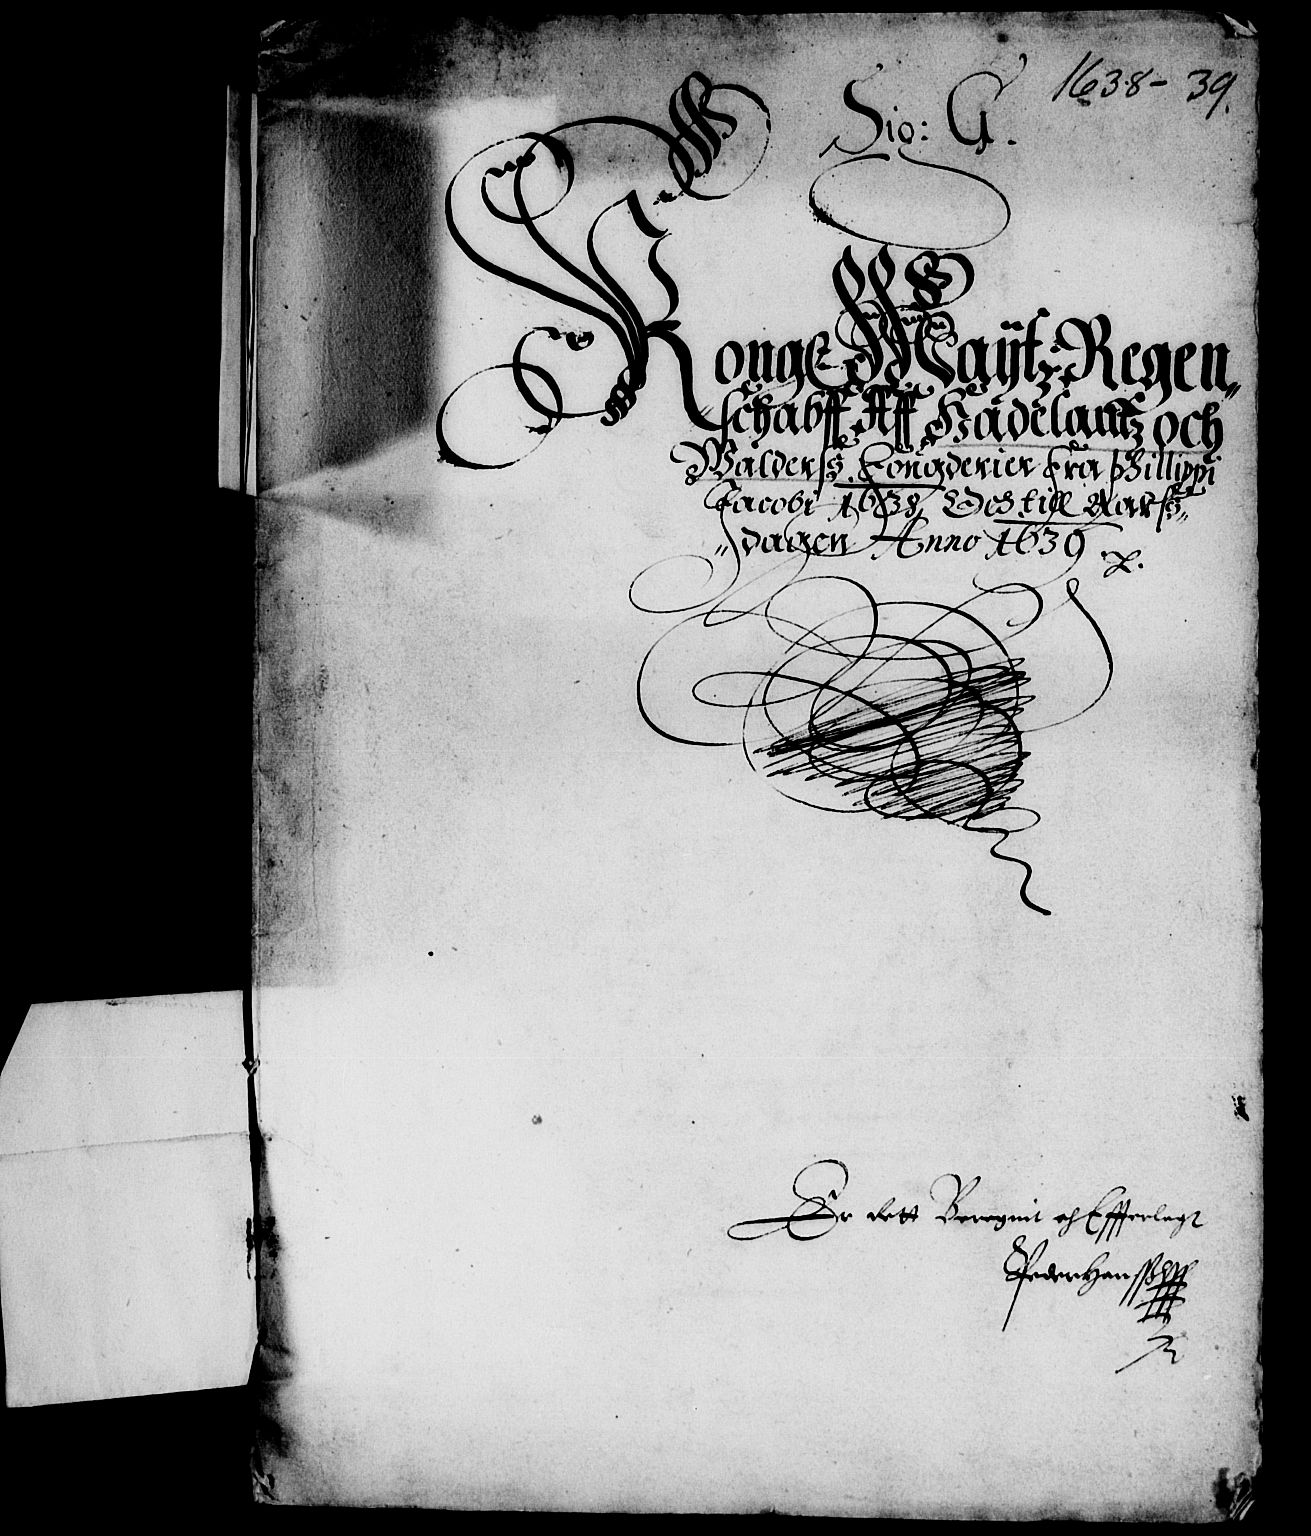 1638 - 39.
Sig: G.
Konge Maÿtz: Regen„
schabff Aff Hadelantz och
Walderss. Fougderier Fra Phillippi
Jacobi 1638 Och till Aarss„
„dagen Anno 1639
Er dett Beregnit och Effterlagt
Peder Hanss